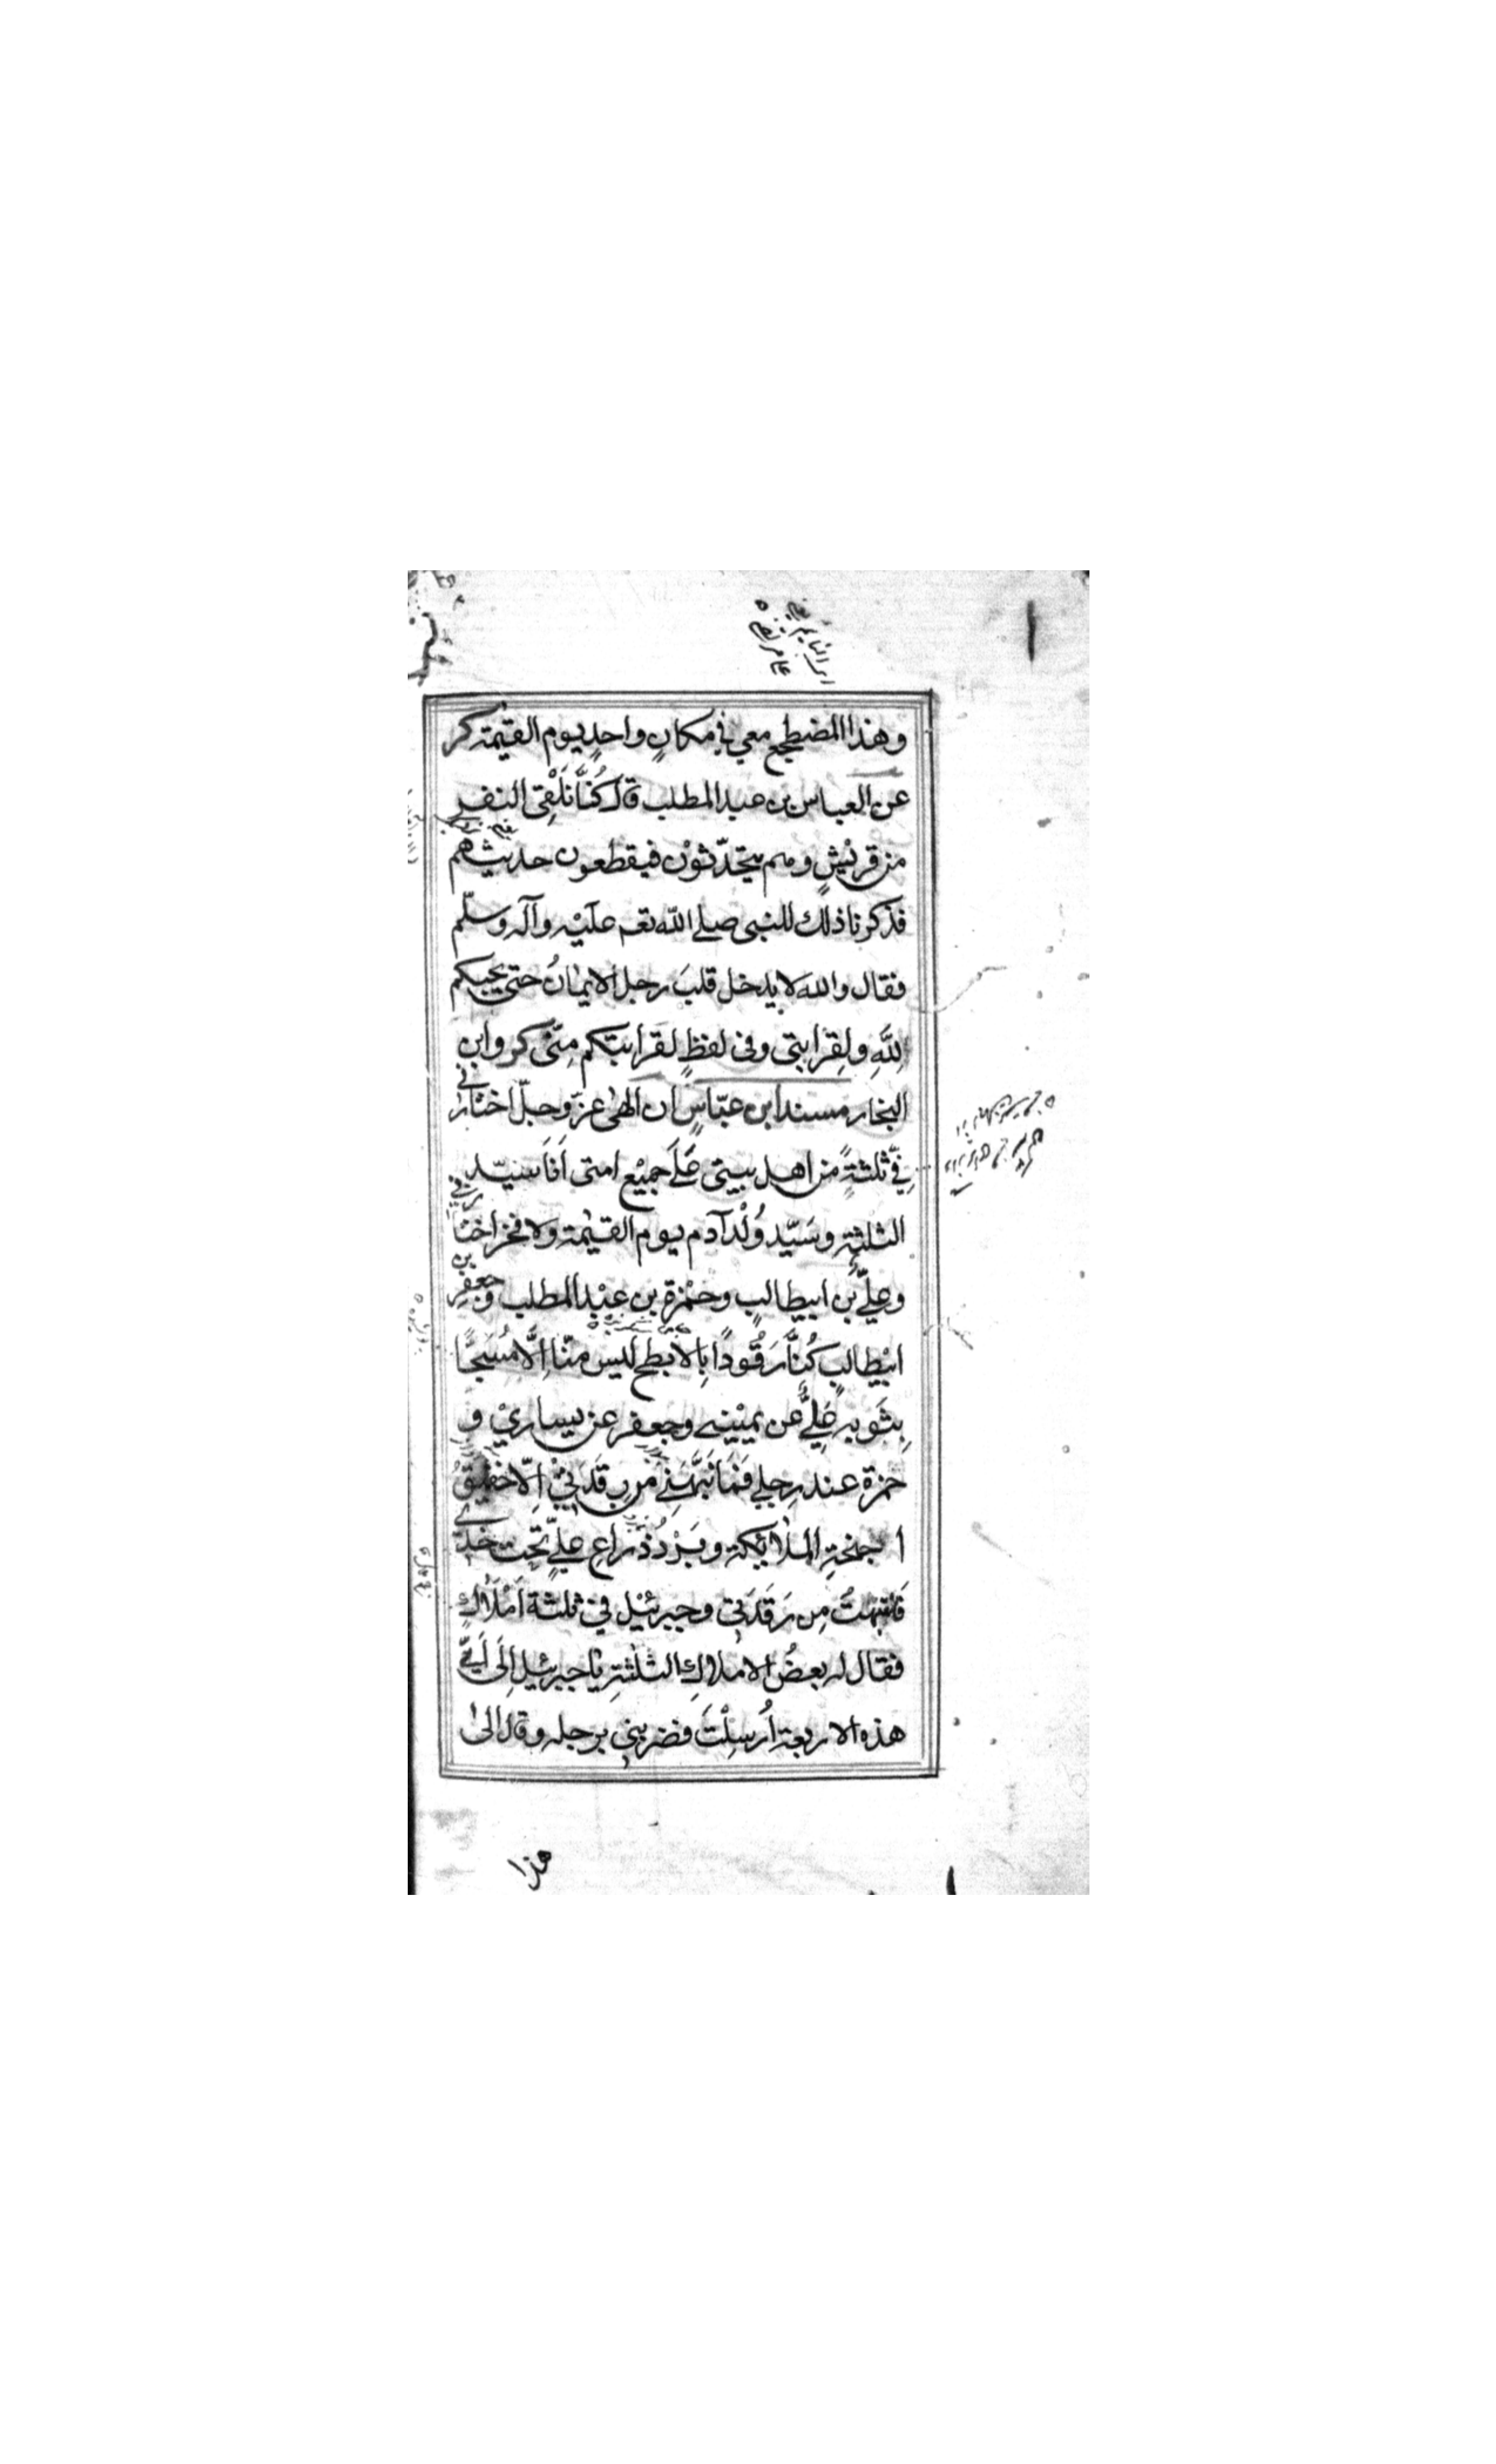 وهذا المضطجع معي في مكانٍ واحدٍ يوم القيمة كر
عن العباس بن عبد المطلب قال كُنَّا نَلْقِى النفر
من قريْشٍ وهم يتحدّثوْن فيقطعون حديثهم
فذكرنا ذلك للنبى صلے الله تعم علَيْه وآله وسلّم
فقال والله لا يدخل قلبَ رجل الايمانُ حتى يحبكم
لِلّٰهِ ولِقرَابتى وفى لفظٍ لقرابتكم مِنّى كر وابن
البخار مسند ابن عبّاسٍ ان الهٰى عزّ وجلّ اختارنى
فِّى ثلثةٍ من اهل بيتى عَلَے جميْع امتى اَنَا سَيّد
الثلثة وسَيّد وُلْد آدم يوم القيٰمة ولا فخر اختارنى
وعلِيّ بن ابيطالبٍ وحمْزة بن عبْد المطلب وجعفر بن
ابيْطالبٍ كُنَّا رَقُودًا بالابطح ليس منّا اِلَّا مُسَجًّا
بِثَوبه عَلِيٌّ عن يميْنے وجعفر عن يساريْ و
حمزة عند رجلے فَمَا نَبَّهَنِے مِن رقدتِيْ اِلّا خفيْقُ
اجنحةِ الملائكة وبَرْدُ ذراع عليٍّ تحت خدّے
فَانتبهتُ مِن رَقَدَتِى وجبرئيْل فى ثلثة اَمْلاكٍ
فقال له بعضُ الاملاكِ الثلٰثةِ يا جبرئيل اِلَى اَيِّ
هذه الاربعة اُرسِلْتَ فضربنى برجله وقال الىٰ
هذا